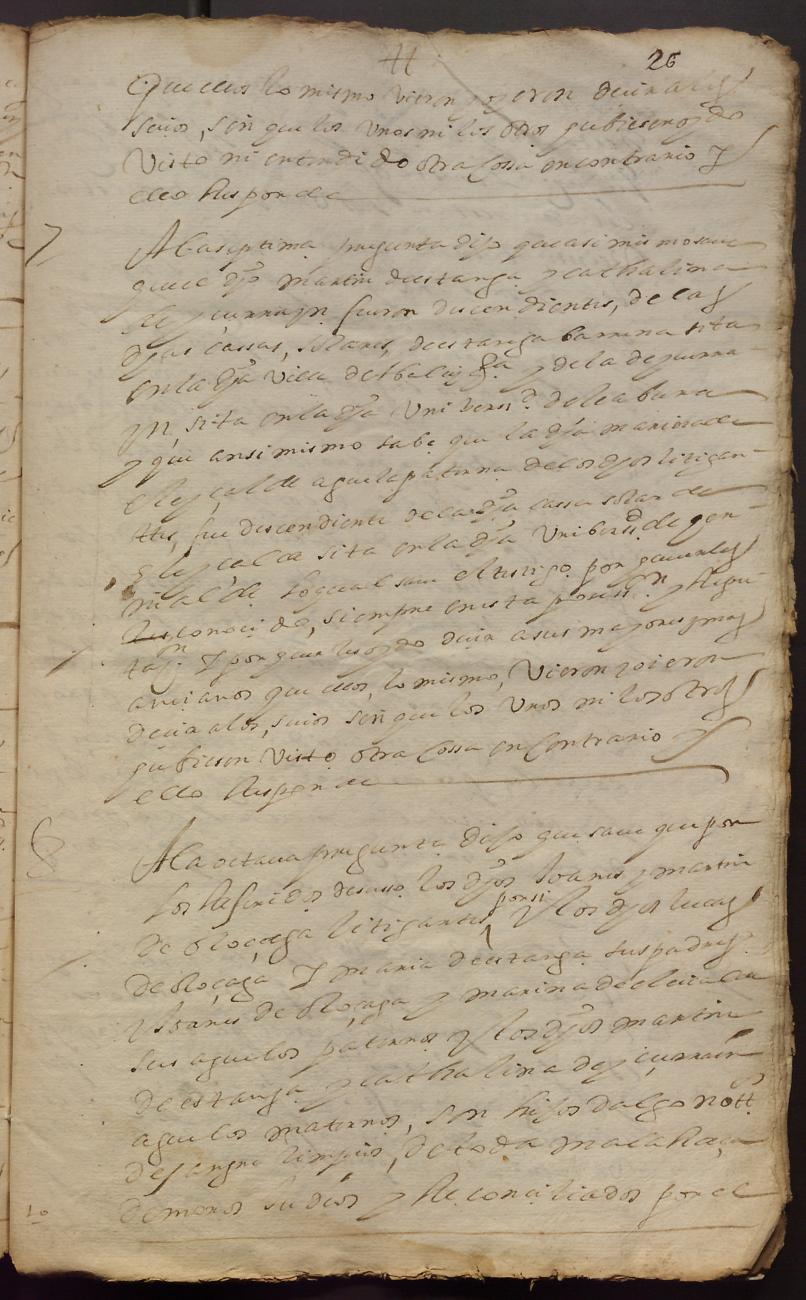 26
que ellos lo mismo vieron y oyeron decir a los
suios, sin que los unos ni los otros hubiesen oydo
visto ni entendido otra cossa en contrario y
ello responde
7
A la septima pregunta dijo que asi mismo save
que el dho martin de estanga y cathalina
de yçurrayn fueron descendientes, de las
dhas cassas, solares, de estanga barrena sita
en la dha villa de y de la de yçurra
yn, sita en la dha universid. de leaburu
y que ansi mismo sabe que la dha marina de
eleyçalde aguela paterna de los dhos litigan
tes, fue descendiente de la dha cassa solar de
eleyçalde sita en la dha unibersid. de
lo qual save el testigo por haverles
conocido, siempre en esta posess.n y repu
taçn. y por haver les oydo decir a sus mayores y mas
ancianos que ellos, lo mismo, vieron y oieron
decir a los, suios sin que los unos ni los otros
hubiesen visto otra cossa en contrario y
ello responde
8
A la octava pregunta dijo que save que por
los referidos desuso los dhos Joanes y martin
de oloçaga litigantes porsi y los dhos lucas
de oloçaga y maria de estanga sus padres
y Joanes de oloçaga y marina de eleiçalde
sus aguelos paternos y los dhos martin
de estanga y cathalina de yçurrain
aguelos maternos, son hijos dalgo nott.
de sangre limpios, de toda mala raça
de moros Judios y Reconciliados por el